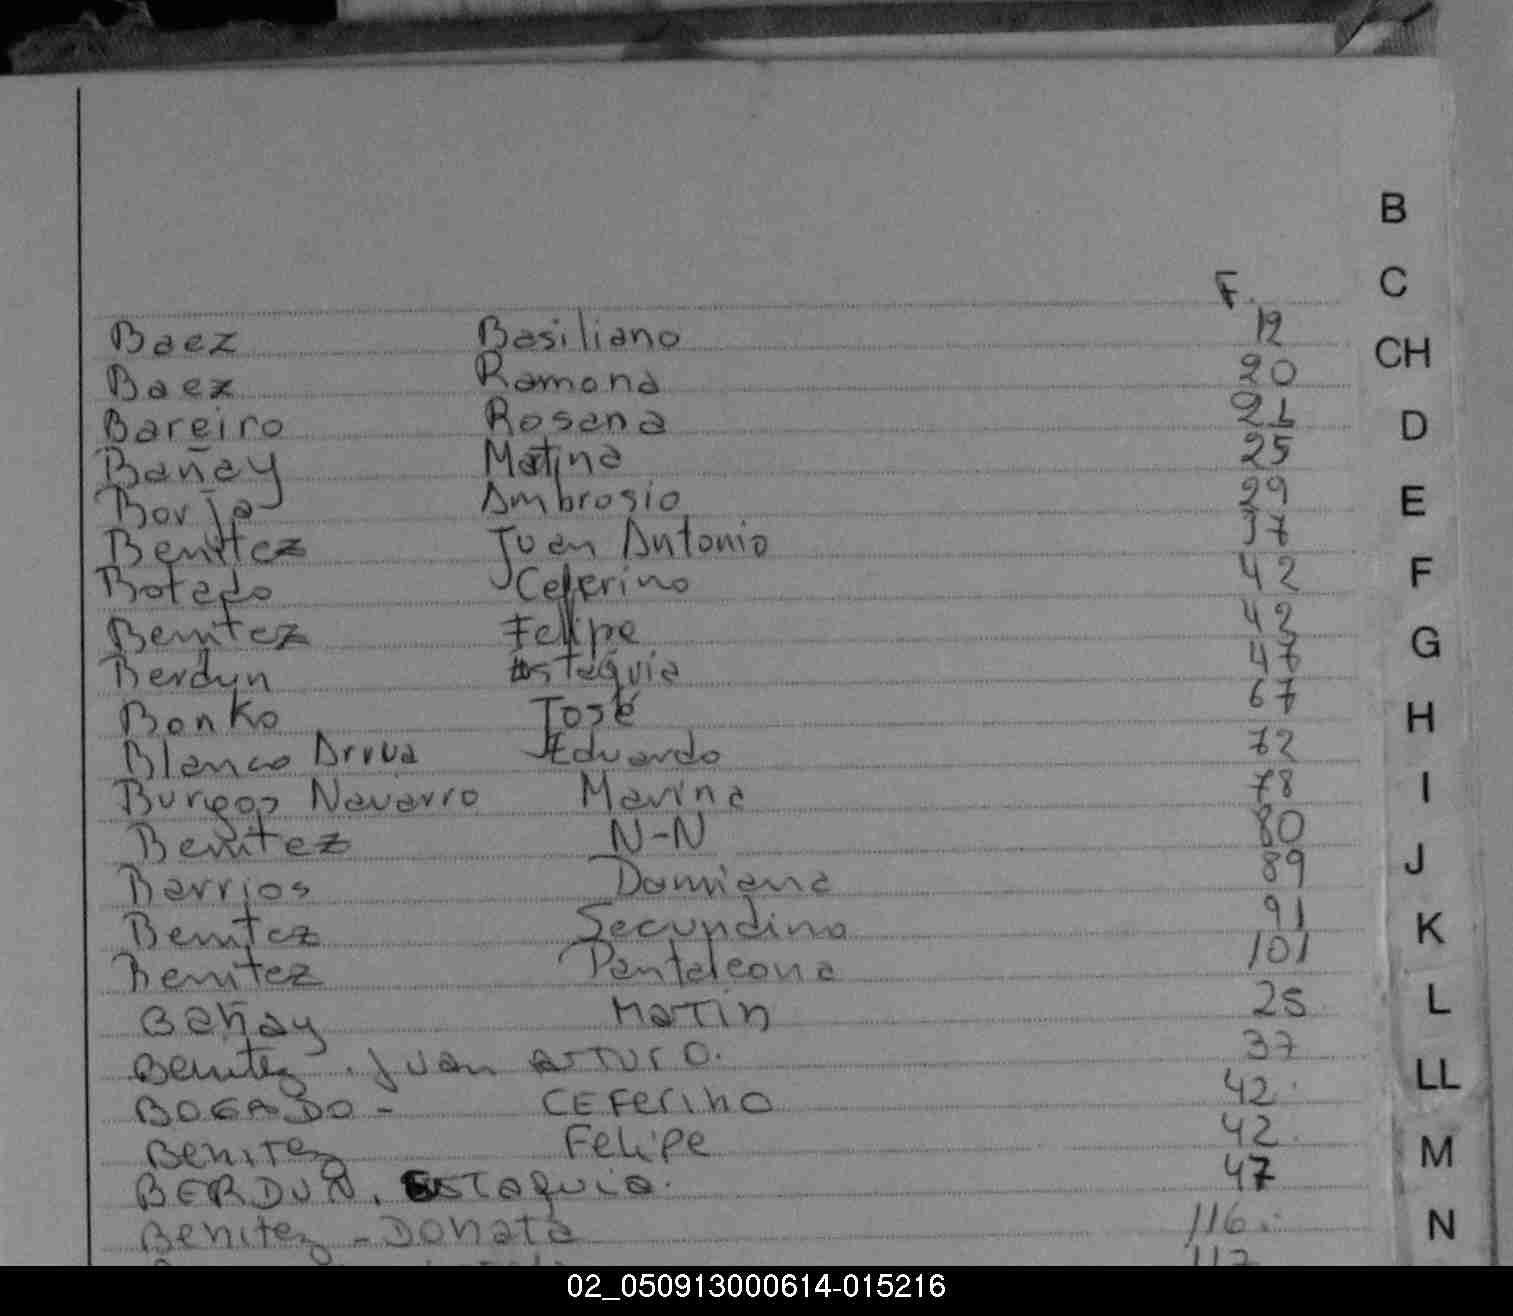 B
C
F.
Baez Basiliano 12
CH
Baez Ramona 20
Bareiro Rosana 21
D
Bañay Matina 25
Borja Ambrosio 29
E
Benitez Juan Antonio 37
Botado Ceferino 42
F
Benitez Felipe 42
G
Berdyn Estaquia 47
Bonko José 67
H
Blanco Arrua Eduardo 72
Burgos Navarro Marina 78
I
Benitez N-N 80
Barrios Damiana 89
J
Benitez Secundino 91
K
Benitez Pantaleona 101
Bañay Matin 25
L
Benitez. Juan arturo. 37
BOGADO - CEFerino 42.
LL
Benitez Felipe 42.
M
BERDUN. ESTaquia. 47
Benitez - Donata 116.
N
117
02_050913000614-015216